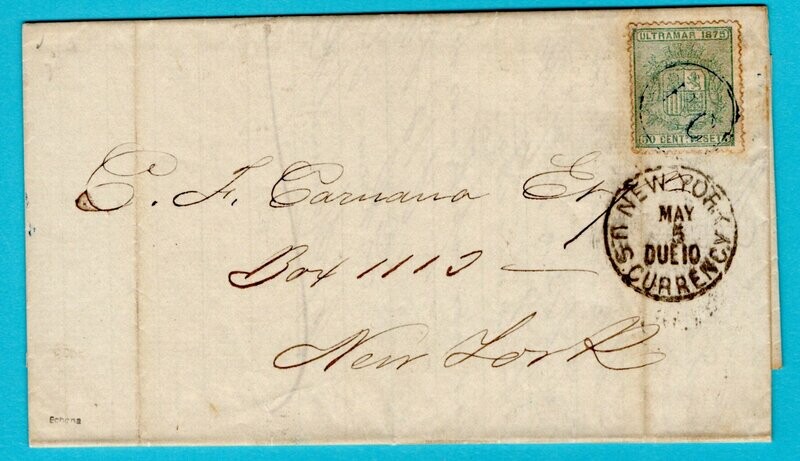 ULTRAMAR 1875
50 CENT. PESETA
C. F. Carnana Esq
Box 1113
New York
NEW YORK
MAY
5
DUE 10
U.S. CURRENCY